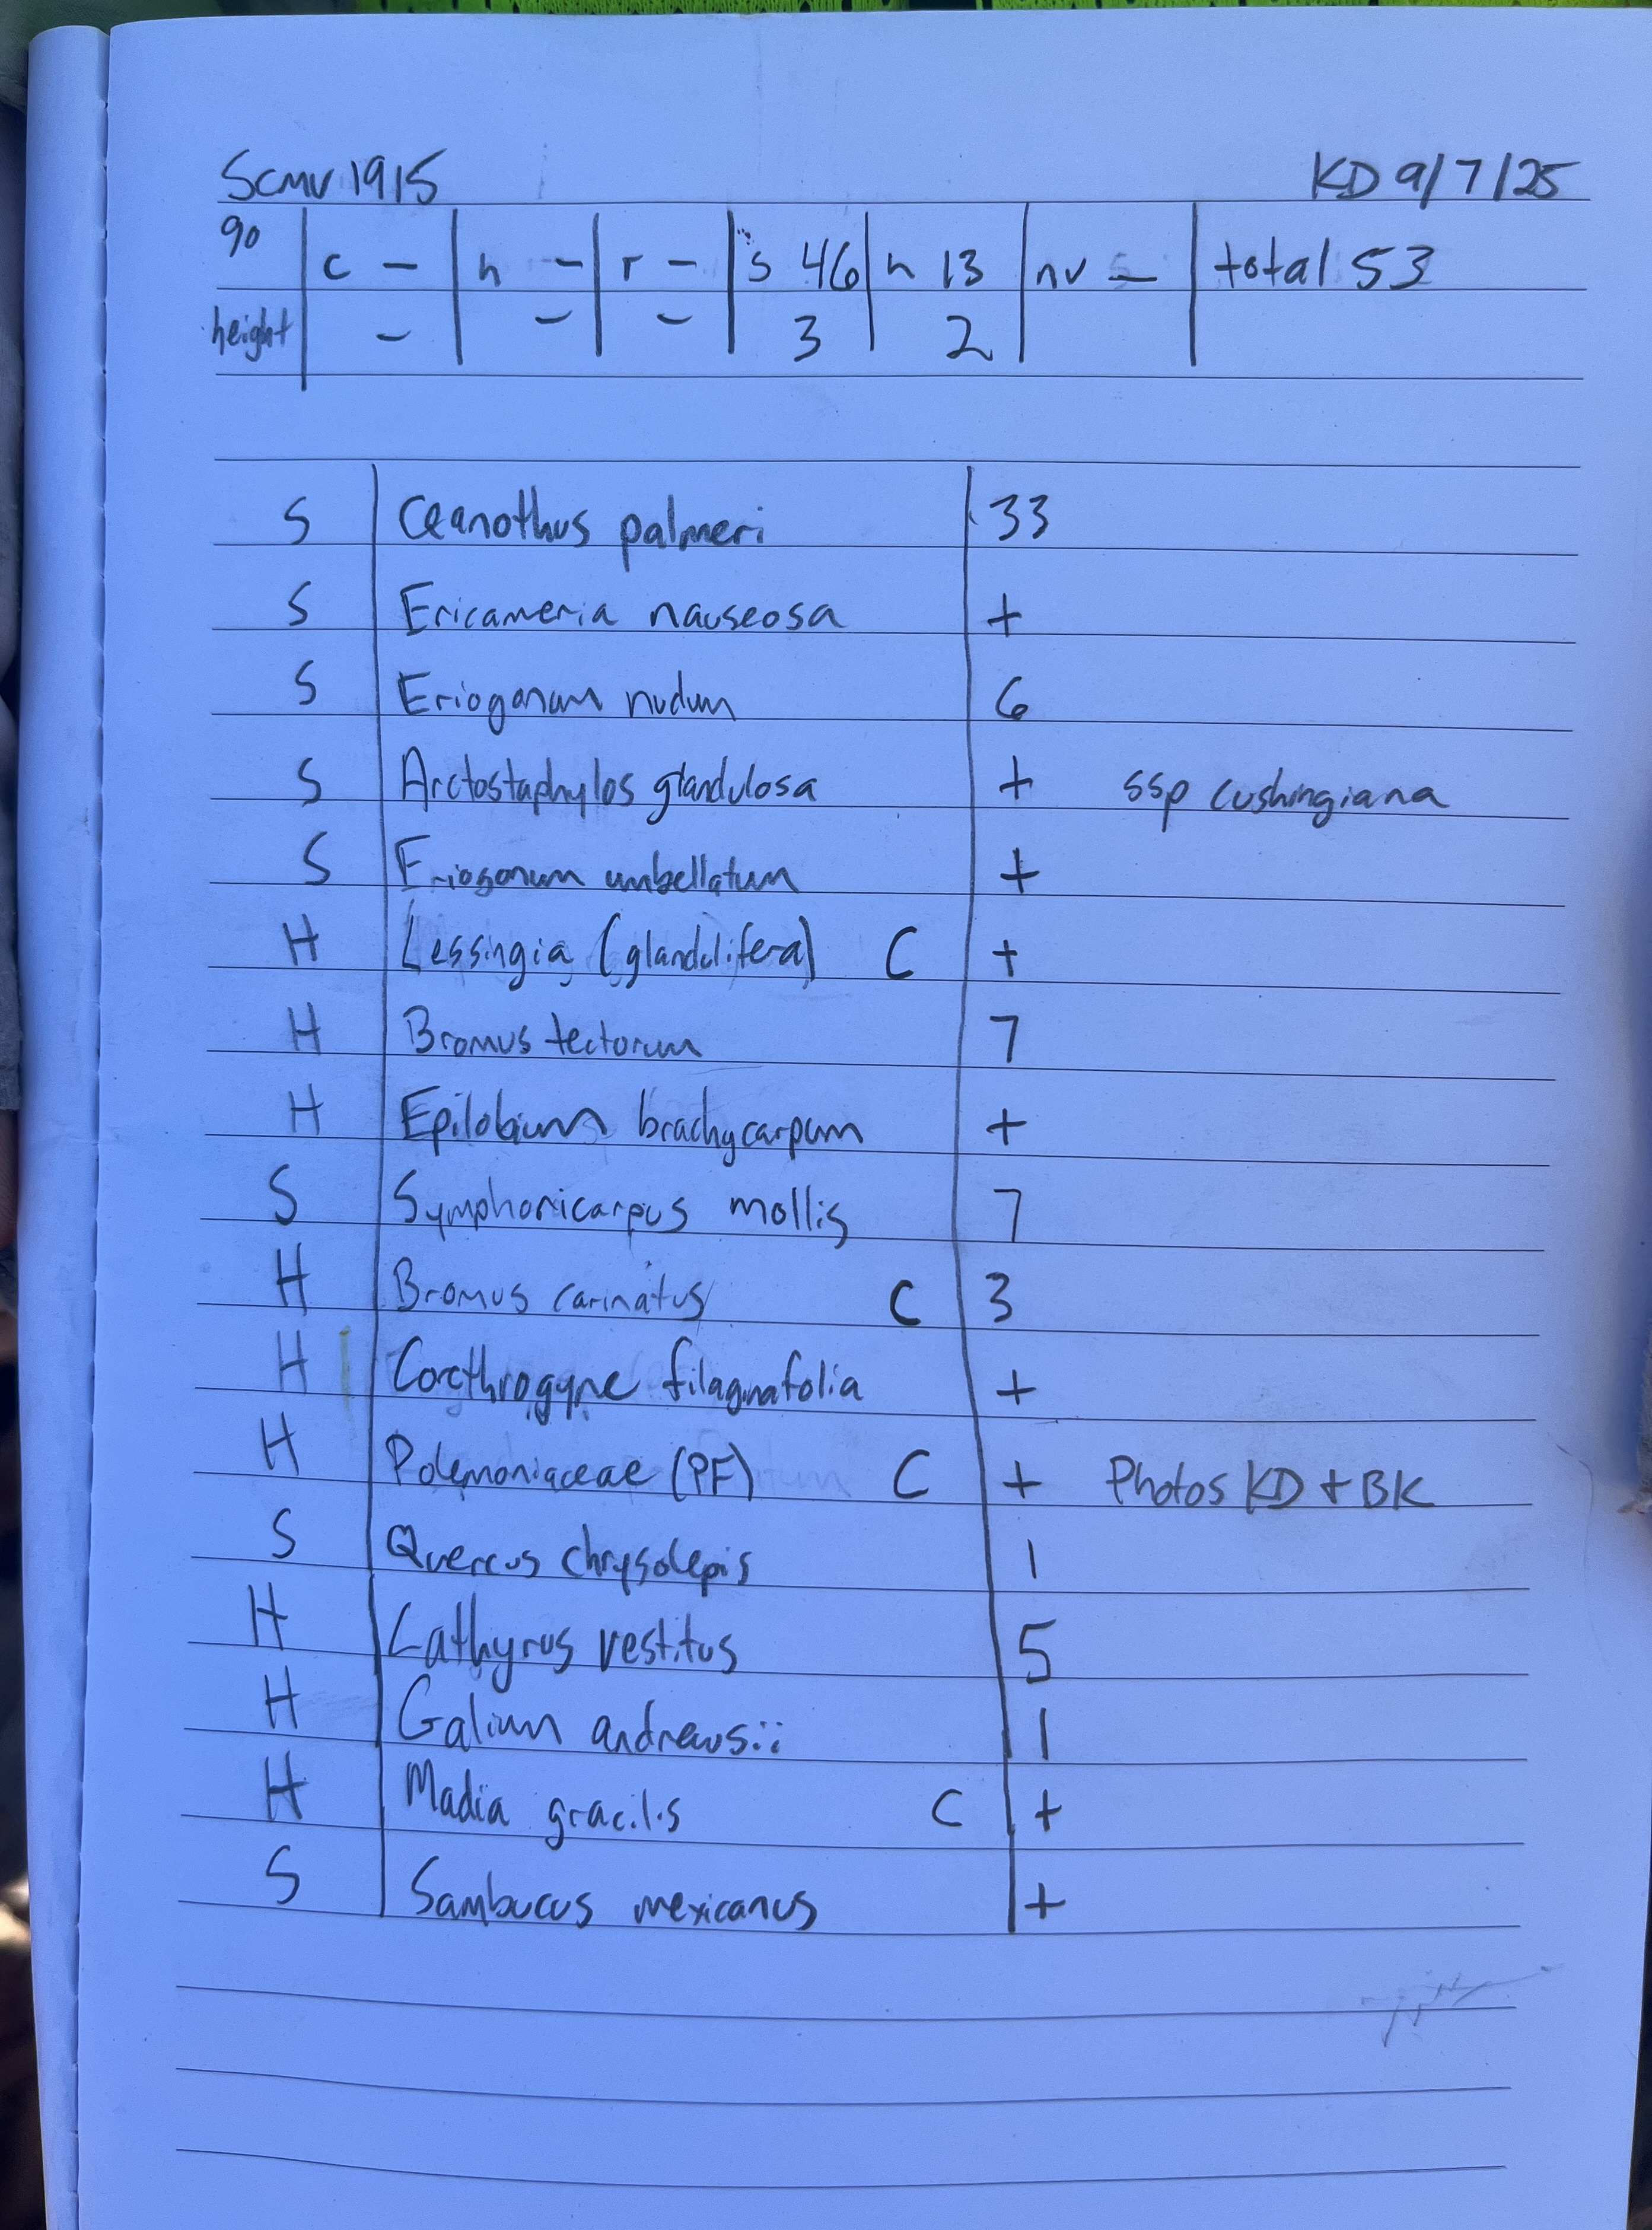 SCMV 1915 KD 9/7/25
90 c - h - r - s 46 h 13 nv - total 53
height - - - 3 2
S Ceanothus palmeri 33
S Ericameria nauseosa +
S Eriogonum nudum 6
S Arctostaphylos glandulosa + ssp cushingiana
S Eriogonum umbellatum +
H Lessingia (glandulifera) C +
H Bromus tectorum 7
H Epilobium brachycarpum +
S Symphoricarpus mollis 7
H Bromus carinatus C 3
H Corethrogyne filaginafolia +
H Polemoniaceae (PF) C + Photos KD + BK
S Quercus chrysolepis 1
H Lathyrus vestitus 5
H Galium andrewsii 1
H Madia gracilis C +
S Sambucus mexicanus +